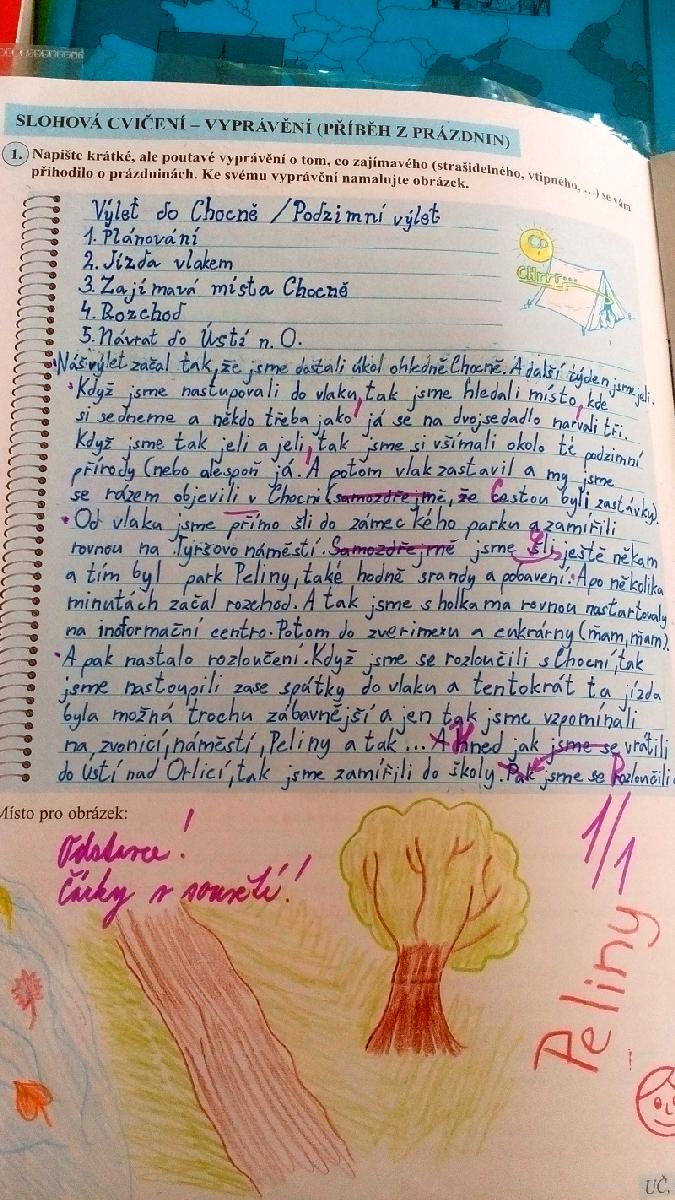 SLOHOVÁ CVIČENÍ – VYPRÁVĚNÍ (PŘÍBĚH Z PRÁZDNIN)
1. Napište krátké, ale poutavé vyprávění o tom, co zajímavého (strašidelného, vtipného, ...) se vám
přihodilo o prázdninách. Ke svému vyprávění namalujte obrázek.
Výlet do Chocně / Podzimní výlet
1. Plánování
2. Jízda vlakem
3. Zajímavá místa Chocně
4. Rozchod
5. Návrat do Ústí n. O.
CHrrr...
Náš výlet začal tak, že jsme dostali úkol ohledně Chocně. A další týden jsme jeli.
Když jsme nastupovali do vlaku, tak jsme hledali místo, kde
si sedneme a někdo třeba jako já se na dvojsedadlo narvali tři.
Když jsme tak jeli a jeli, tak jsme si všímali okolo té podzimní
přírody (nebo alespoň já. A potom vlak zastavil a my jsme
se rázem objevili v Chocni (samozdřejmě, že Cestou byli zastávky).
Od vlaku jsme přímo šli do zámeckého parku a zamířili
rovnou na Tyršovo náměstí. Samozdřejmě jsme šli ještě někam
a tím byl park Peliny, také hodně srandy a pobavení. A po několika
minutách začal rozchod. A tak jsme s holkama rovnou nastartovaly
na informační centro. Potom do zverimexu a cukrárny (mňam, mňam).
A pak nastalo rozloučení. Když jsme se rozloučili s Chocní, tak
jsme nastoupili zase spátky do vlaku a tentokrát ta jízda
byla možná trochu zábavnější a jen tak jsme vzpomínali
na zvonici, náměstí, Peliny a tak... A Hned jak jsme se vrátili
do Ústí nad Orlicí, tak jsme zamířili do školy. Pak jsme se Rozloučili
Místo pro obrázek:
Odstavce!
Čárky v souvětí!
1/1
Peliny
!
UČ,